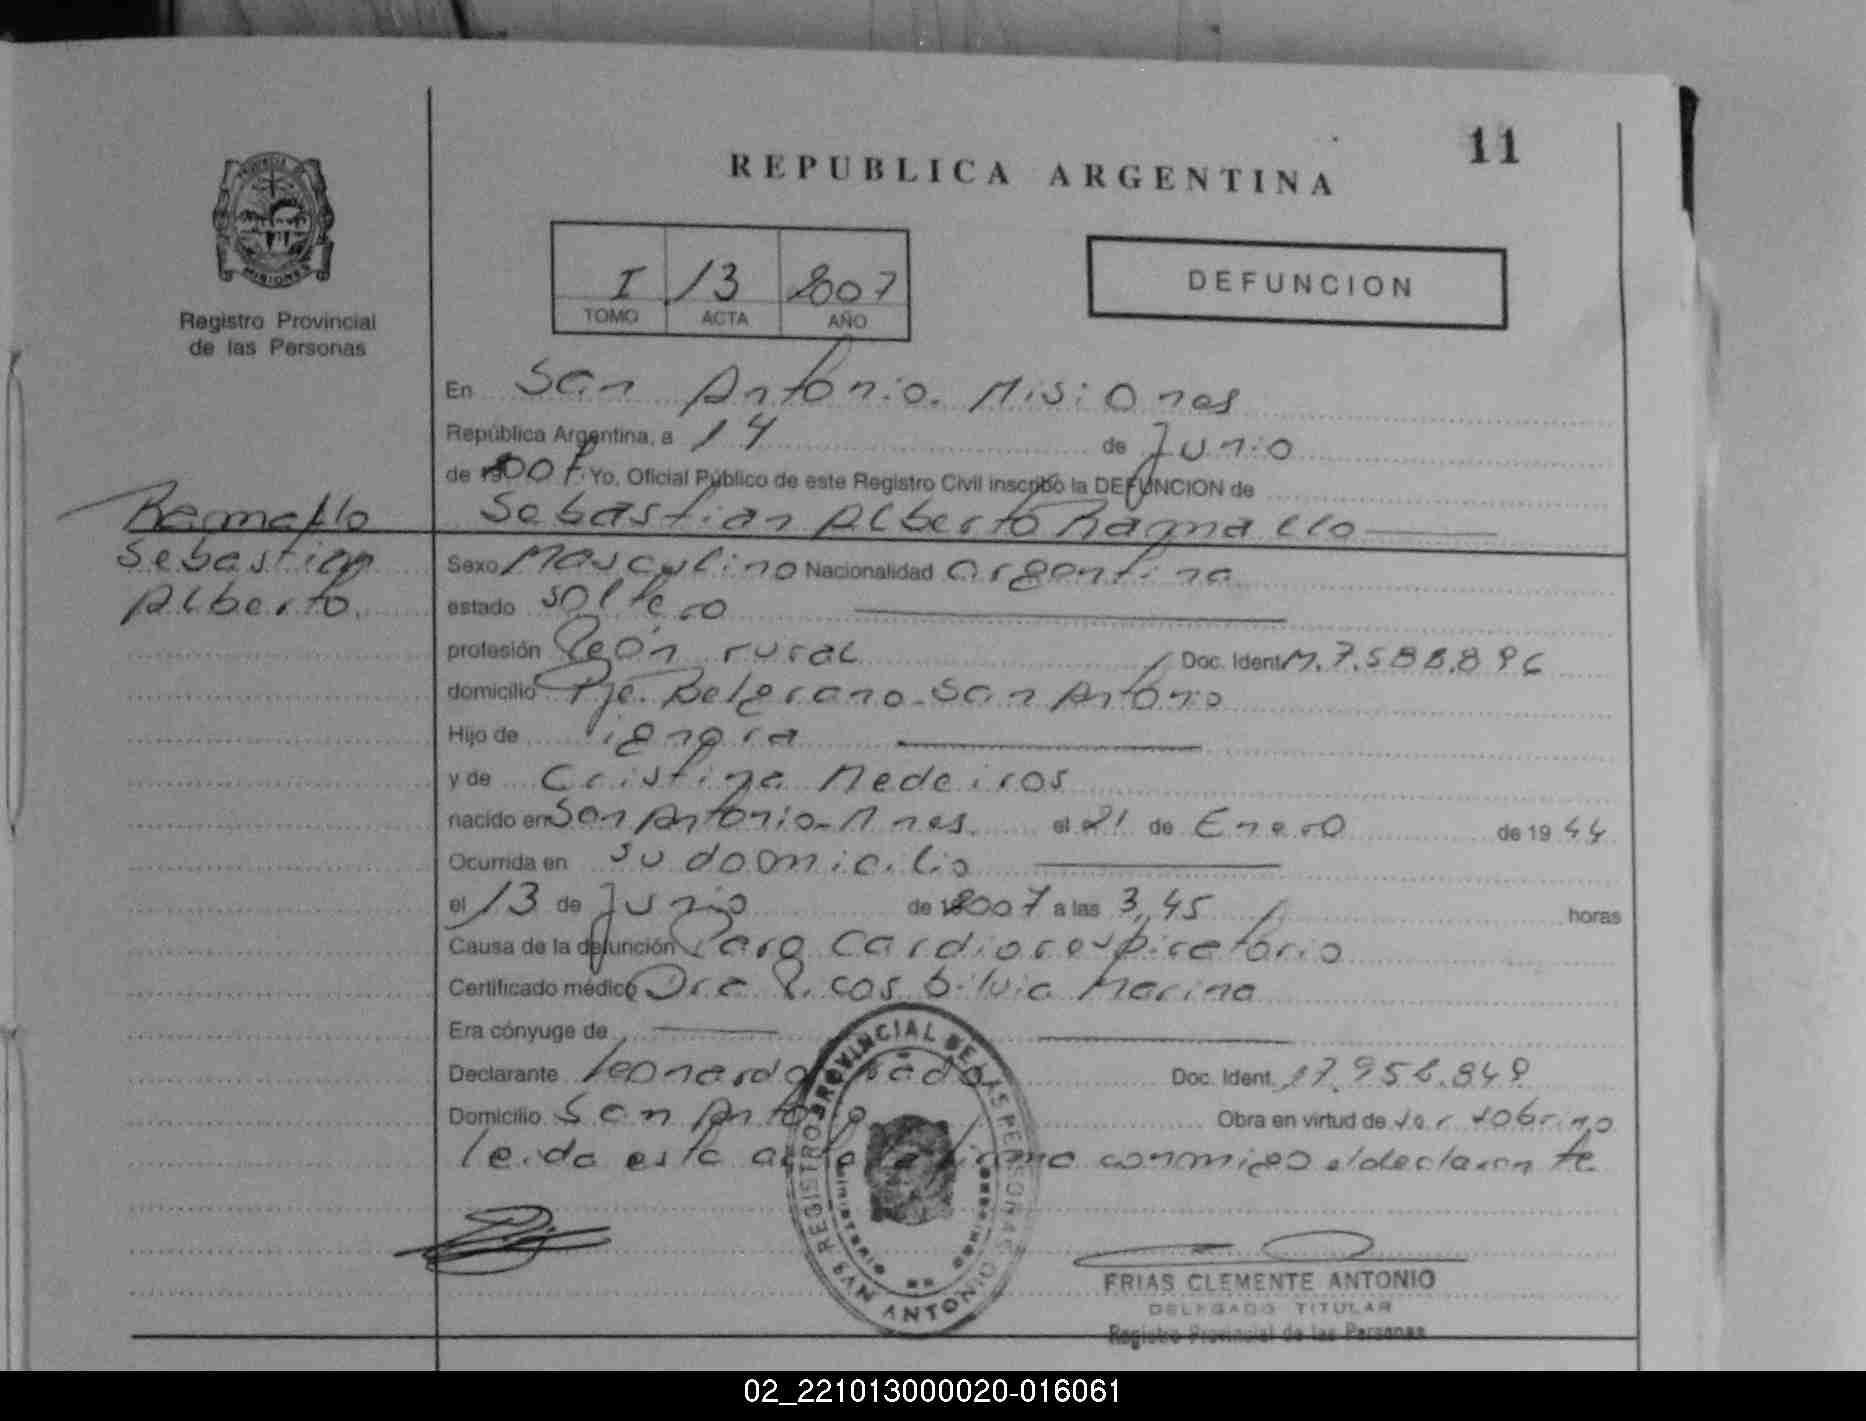 11
REPUBLICA ARGENTINA
PROVINCIA DE
MISIONES
Registro Provincial
de las Personas
I 13 2007
TOMO ACTA AÑO
DEFUNCION
En San Antonio. Misiones
República Argentina, a 14 de Junio
de 2007 Yo, Oficial Público de este Registro Civil inscribo la DEFUNCION de
Sebastian Alberto Ramallo
Ramallo
Sebastian
Alberto.
Sexo Masculino Nacionalidad argentina
estado soltero
profesión Peón rural Doc. Ident. M.7.588.896
domicilio Pje. Belgrano-San Antonio
Hijo de ignora
y de Cristina Medeiros
nacido en San Antonio-Mnes. el 21 de Enero de 1944
Ocurrida en su domicilio
el 13 de Junio de 2007 a las 3,45 horas
Causa de la defunción Paro Cardiorespiratorio
Certificado médico Dra Silvia Marina
Era cónyuge de
Declarante Leonardo Doc. Ident. 17.958.849
Domicilio San Antonio Obra en virtud de ser sobrino
leida esta acta la firma conmigo el declarante
REGISTRO PROVINCIAL DE LAS PERSONAS
SAN ANTONIO
FRIAS CLEMENTE ANTONIO
DELEGADO TITULAR
Registro Provincial de las Personas
02_221013000020-016061